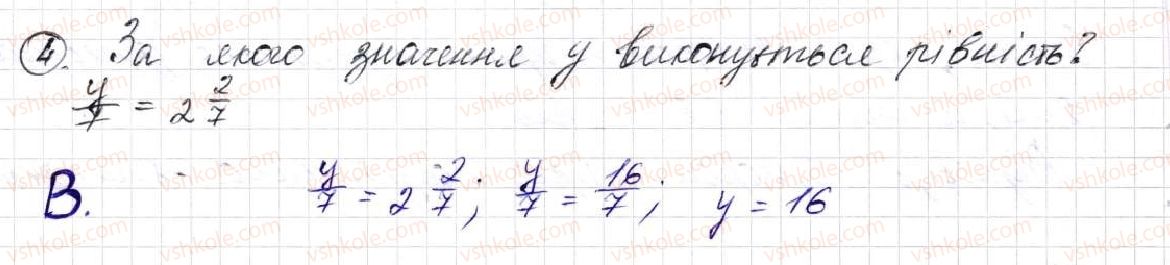 4. За якого значення y виконується рівність?
y/7 = 2 2/7
В. y/7 = 2 2/7; y/7 = 16/7; y = 16
vshkole.com